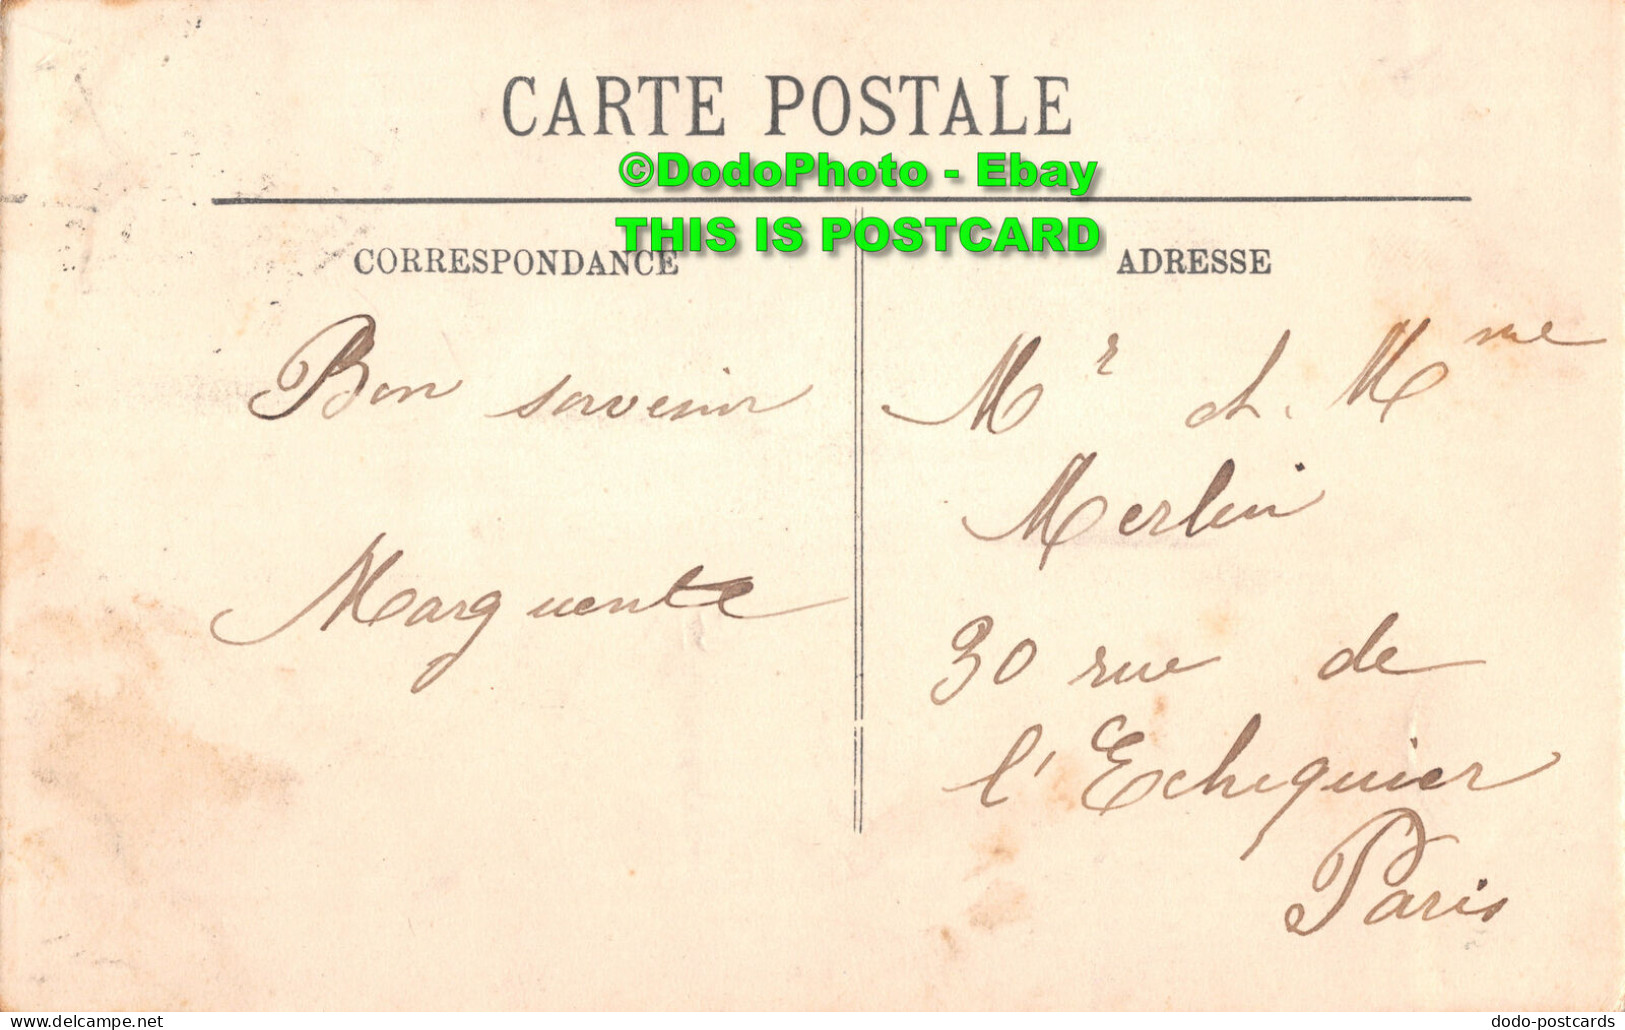 CARTE POSTALE
©DodoPhoto - Ebay
THIS IS POSTCARD
CORRESPONDANCE
ADRESSE
Bon souvenir
Marguerite
Mr et Mme
Merlin
30 rue de
l'Echiquier
Paris
www.delcampe.net
dodo-postcards